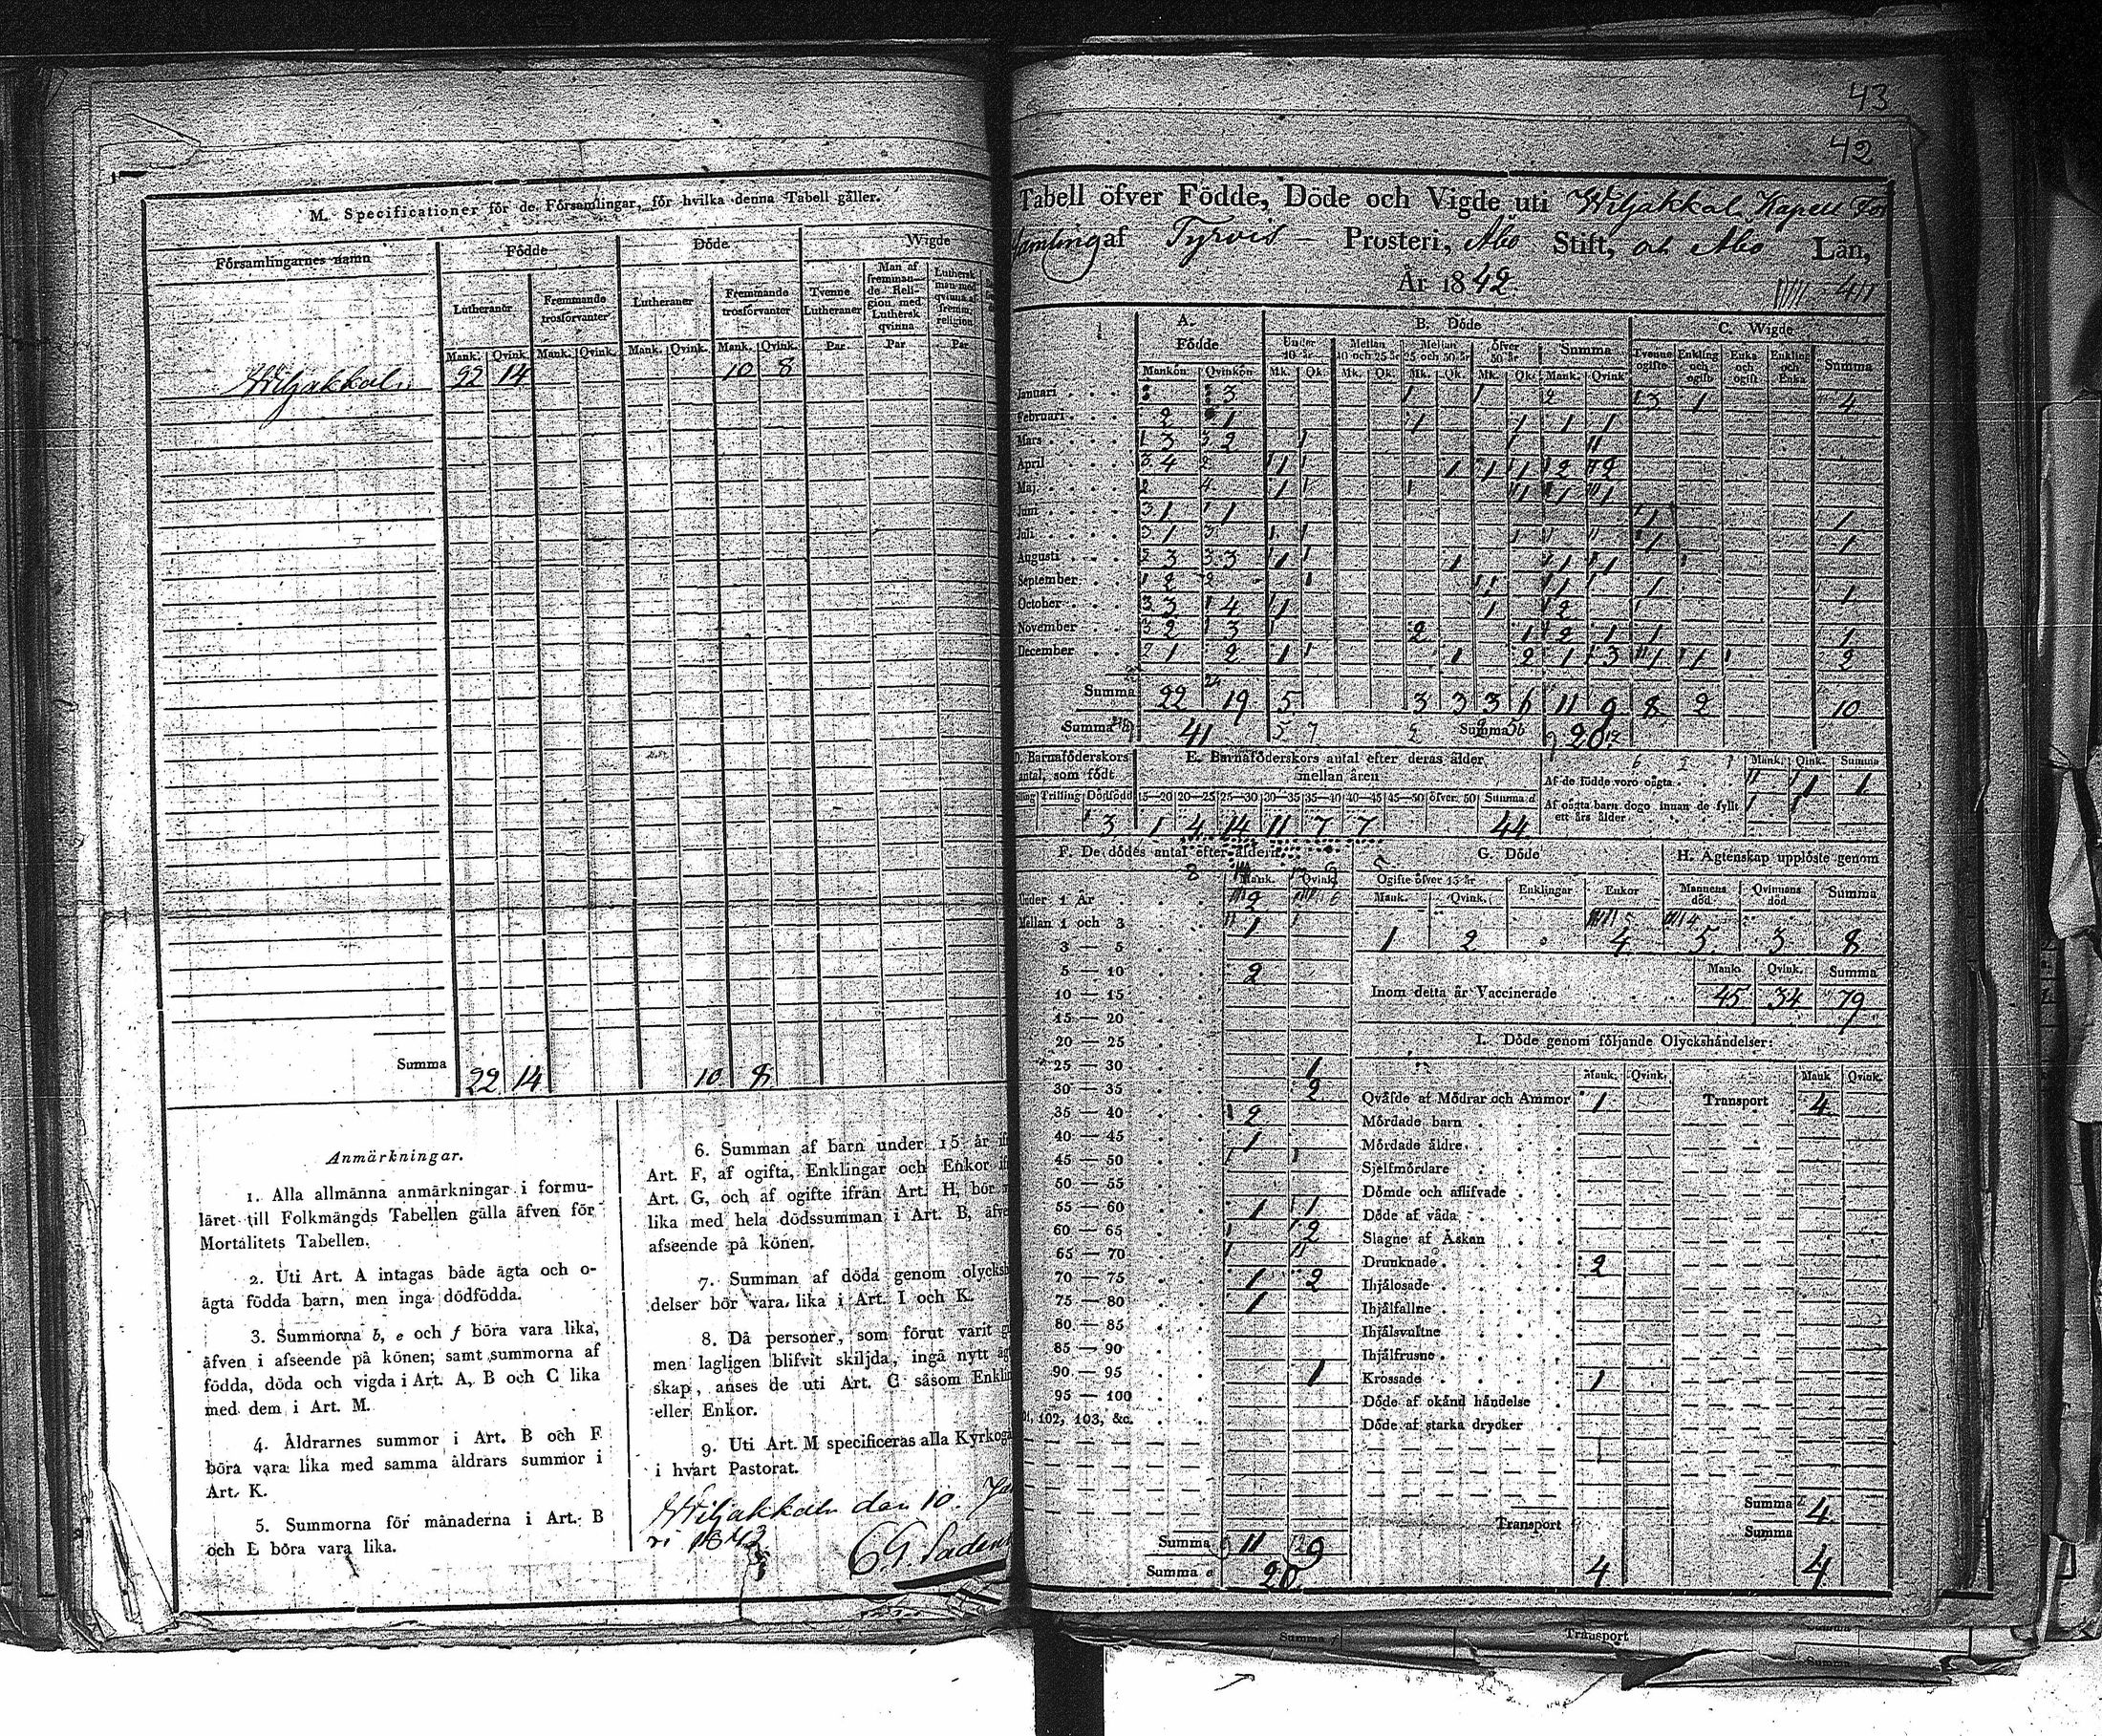 M. Specificationer för de Församlingar, för hvilka denna Tabell gäller.
Församlingarnes namn
Födde
Döde
Wigde
Lutheraner
Fremmande trosförvanter
Lutheraner
Fremmande trosförvanter
Tvenne Lutheraner
Man af fremmande Religion med Luthersk qvinna
Luthersk man med qvinna af fremm. religion
Mank. Qvink. Mank. Qvink. Mank. Qvink. Mank. Qvink. Par Par Par
Wiljakkala 22 14 10 8
Summa 22 14 10 8
Anmärkningar.
1. Alla allmänna anmärkningar i formu-
läret till Folkmängds Tabellen gälla äfven för
Mortalitets Tabellen.
2. Uti Art. A intagas både ägta och o-
ägta födda barn, men inga dödfödda.
3. Summorna b, e och f böra vara lika,
äfven i afseende på könen; samt summorna af
födda, döda och vigda i Art. A, B och C lika
med dem i Art. M.
4. Åldrarnes summor i Art. B och F
böra vara lika med samma åldrars summor i
Art. K.
5. Summorna för månaderna i Art. B
och L böra vara lika.
6. Summan af barn under 15 år
Art. F, af ogifta, Enklingar och Enkor
Art. G, och af ogifte ifrån Art. H, bör
lika med hela dödssumman i Art. B,
afseende på könen.
7. Summan af döda genom
delser bör vara lika i Art. I och K.
8. Då personer, som förut varit
men lagligen blifvit skiljda, ingå nytt
skap, anses de uti Art. C såsom
eller Enkor.
9. Uti Art. M specificeras alla
i hvart Pastorat.
Wiljakkala den 10.
ri 1843
43
42
Tabell öfver Födde, Döde och Vigde uti Wiljakkala Kapell För
samling af Tyrvis Prosteri, Åbo Stift, och Åbo Län,
År 1842
A. Födde
B. Döde
C. Wigde
Under 10 år
Mellan 10 och 25 år
Mellan 25 och 50 år
Öfver 50 år
Summa
Tvenne ogifte
Enkling och ogift
Enka och ogift
Enkling och Enka
Summa
Mankön Qvinkön Mk. Qk. Mk. Qk. Mk. Qk. Mk. Qk. Mank. Qvink.
Januari 3 1 1 2 3 1 4
Februari 2 1 1 1 1 1
Mars 3 2
April 4 1 1 1 1 2 2
Maj 1 1 1 1
Juni 1 1 1 1
Juli 1 1 1
Augusti 3 3 1 1 1 1
September 2 1 1
October 3 4 1 1 2
November 2 3 2 1 2 1 1 1
December 1 2 1 1 2 1 3 1 1 2
Summa 22 19 5 3 3 3 6 11 9 8 2 10
Summa 41 Summa b 20
D. Barnaföderskors antal, som födt
Trilling Dödfödd
3
E. Barnaföderskors antal efter deras ålder
mellan åren
15—20 20—25 25—30 30—35 35—40 40—45 45—50 öfver 50 Summa d
1 4 14 11 7 7 44
Mank. Qink. Summa
Af de födde voro oägta 1 1
Af oägta barn dogo innan de fyllt
ett års ålder
F. De dödes antal efter åldern
Mank. Qvink.
Under 1 År 2
Mellan 1 och 3 1
3 — 5
5 — 10 2
10 — 15
15 — 20
20 — 25
25 — 30 1
30 — 35 2
35 — 40 2
40 — 45 1
45 — 50
50 — 55
55 — 60 1 1
60 — 65 2
65 — 70
70 — 75 1 2
75 — 80 1
80 — 85
85 — 90
90 — 95 1
95 — 100
102, 103, &c.
Summa 11 9
Summa e 20
G. Döde
Ogifte öfver 15 år
Enklingar
Enkor
Mank. Qvink.
1 2 4
H. Ägtenskap upplöste genom
Mannens död
Qvinnans död
Summa
5 3 8
Mank. Qvink. Summa
Inom detta år Vaccinerade 45 34 79
I. Döde genom följande Olyckshändelser:
Mank. Qvink. Mank Qvink.
Qväfde af Mödrar och Ammor 1
Transport 4
Mördade barn
Mördade äldre
Sjelfmördare
Dömde och aflifvade
Döde af våda
Slagne af Åskan
Drunknade 2
Ihjälosade
Ihjälfallne
Ihjälsvultne
Ihjälfrusne
Krossade 1
Döde af okänd händelse
Döde af starka drycker
Summa 4
Transport 4
Summa 4
Transport
Summa